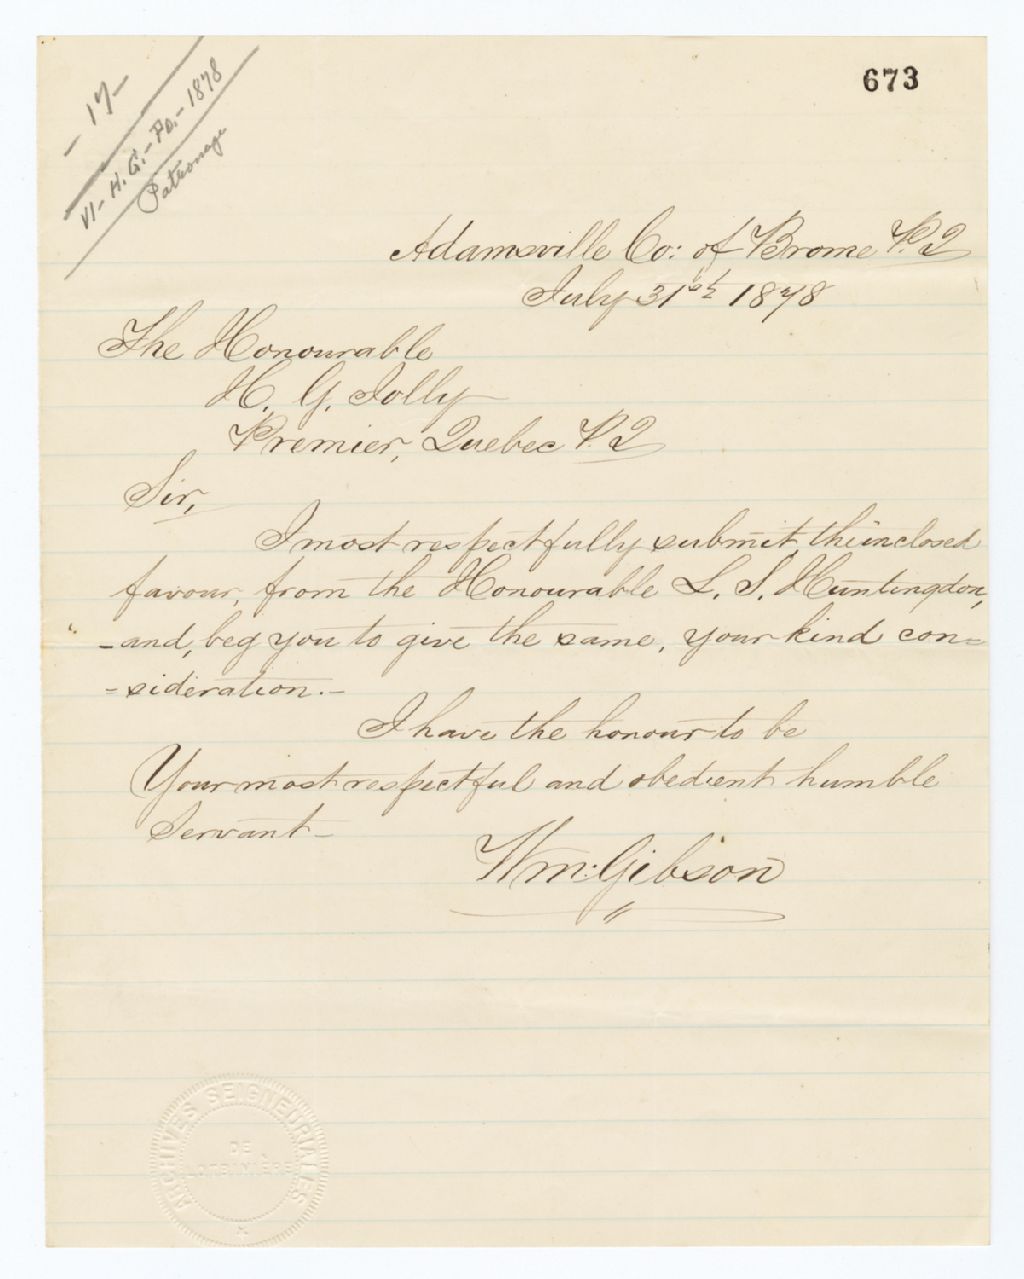 - 17 -
VI - H. G. - Po. - 1878
Patronage
673
Adamsville Co: of Brome P.Q
July 31st 1878
The Honourable
H. G. Jolly
Premier, Quebec P.Q
Sir,
I most respectfully submit, the inclosed
favour, from the Honourable L. S. Huntingdon,
- and, beg you to give the same, your kind con-
- sideration. -
I have the honour to be
Your most respectful and obedient humble
Servant -
Wm: Gibson
ARCHIVES SEIGNEURIALES
DE
LOTBINIÈRE